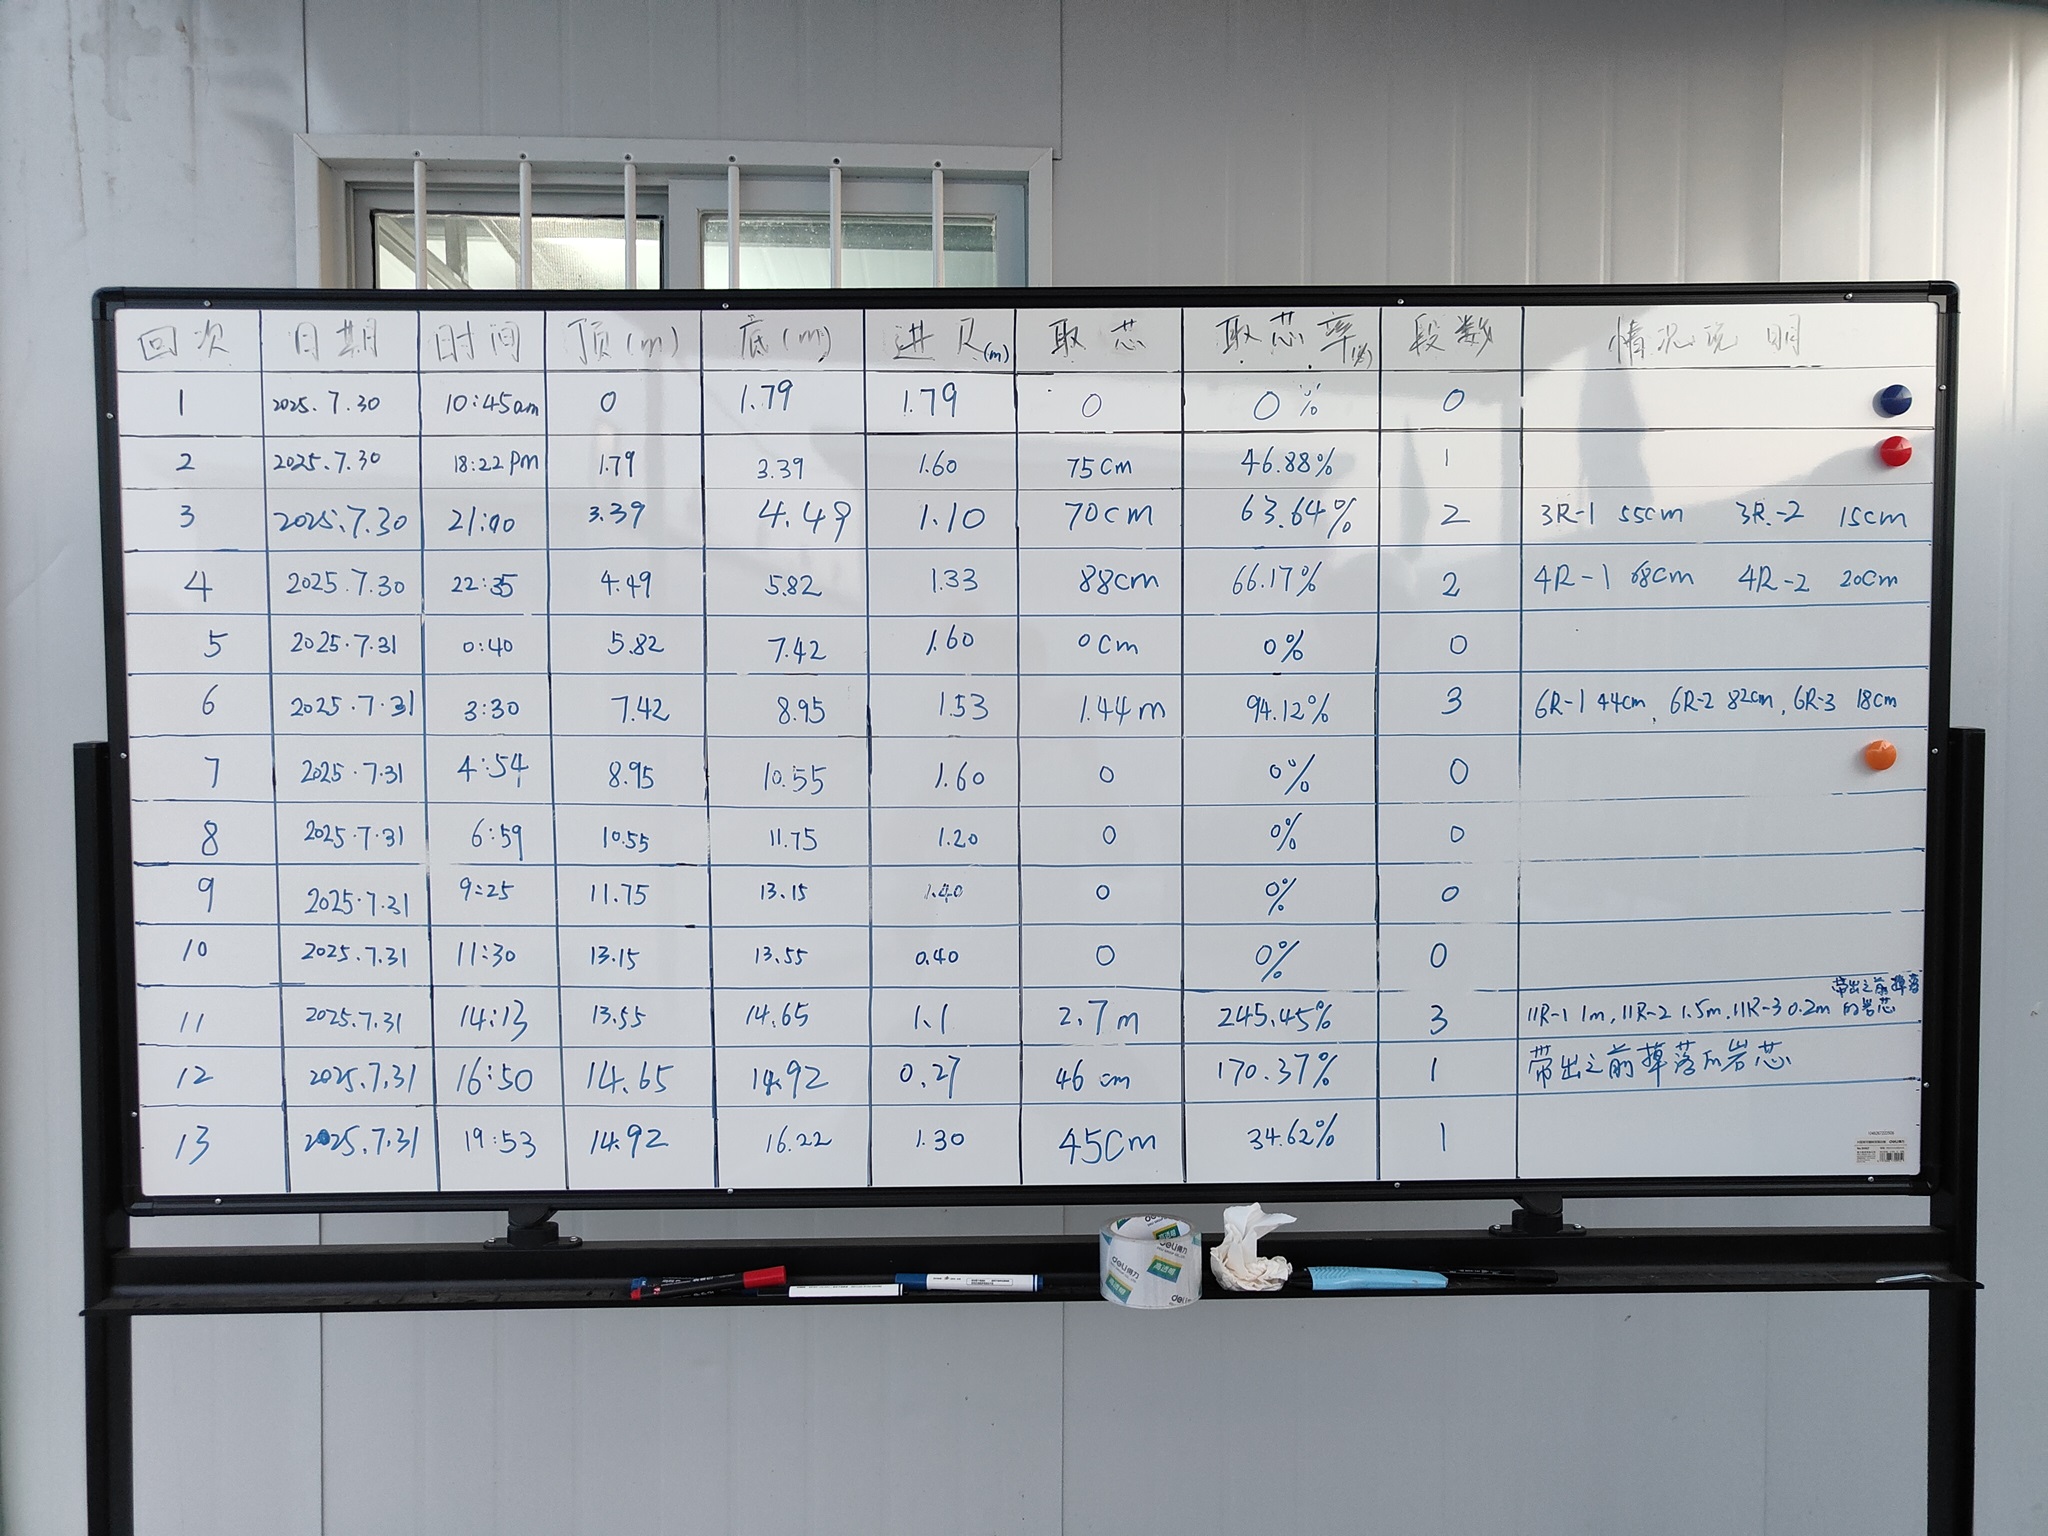 回次 日期 时间 顶(m) 底(m) 进尺(m) 取芯 取芯率(%) 段数 情况说明
1 2025.7.30 10:45am 0 1.79 1.79 0 0% 0
2 2025.7.30 18:22pm 1.79 3.39 1.60 75cm 46.88% 1
3 2025.7.30 21:00 3.39 4.49 1.10 70cm 63.64% 2 3R-1 55cm 3R-2 15cm
4 2025.7.30 22:35 4.49 5.82 1.33 88cm 66.17% 2 4R-1 68cm 4R-2 20cm
5 2025.7.31 0:40 5.82 7.42 1.60 0cm 0% 0
6 2025.7.31 3:30 7.42 8.95 1.53 1.44m 94.12% 3 6R-1 44cm, 6R-2 82cm, 6R-3 18cm
7 2025.7.31 4:54 8.95 10.55 1.60 0 0% 0
8 2025.7.31 6:59 10.55 11.75 1.20 0 0% 0
9 2025.7.31 9:25 11.75 13.15 1.40 0 0% 0
10 2025.7.31 11:30 13.15 13.55 0.40 0 0% 0
11 2025.7.31 14:13 13.55 14.65 1.1 2.7m 245.45% 3 11R-1 1m, 11R-2 1.5m, 11R-3 0.2m 带出之前掉落的岩芯
12 2025.7.31 16:50 14.65 14.92 0.27 46cm 170.37% 1 带出之前掉落的岩芯
13 2025.7.31 19:53 14.92 16.22 1.30 45cm 34.62% 1
deli得力
高透明
deli